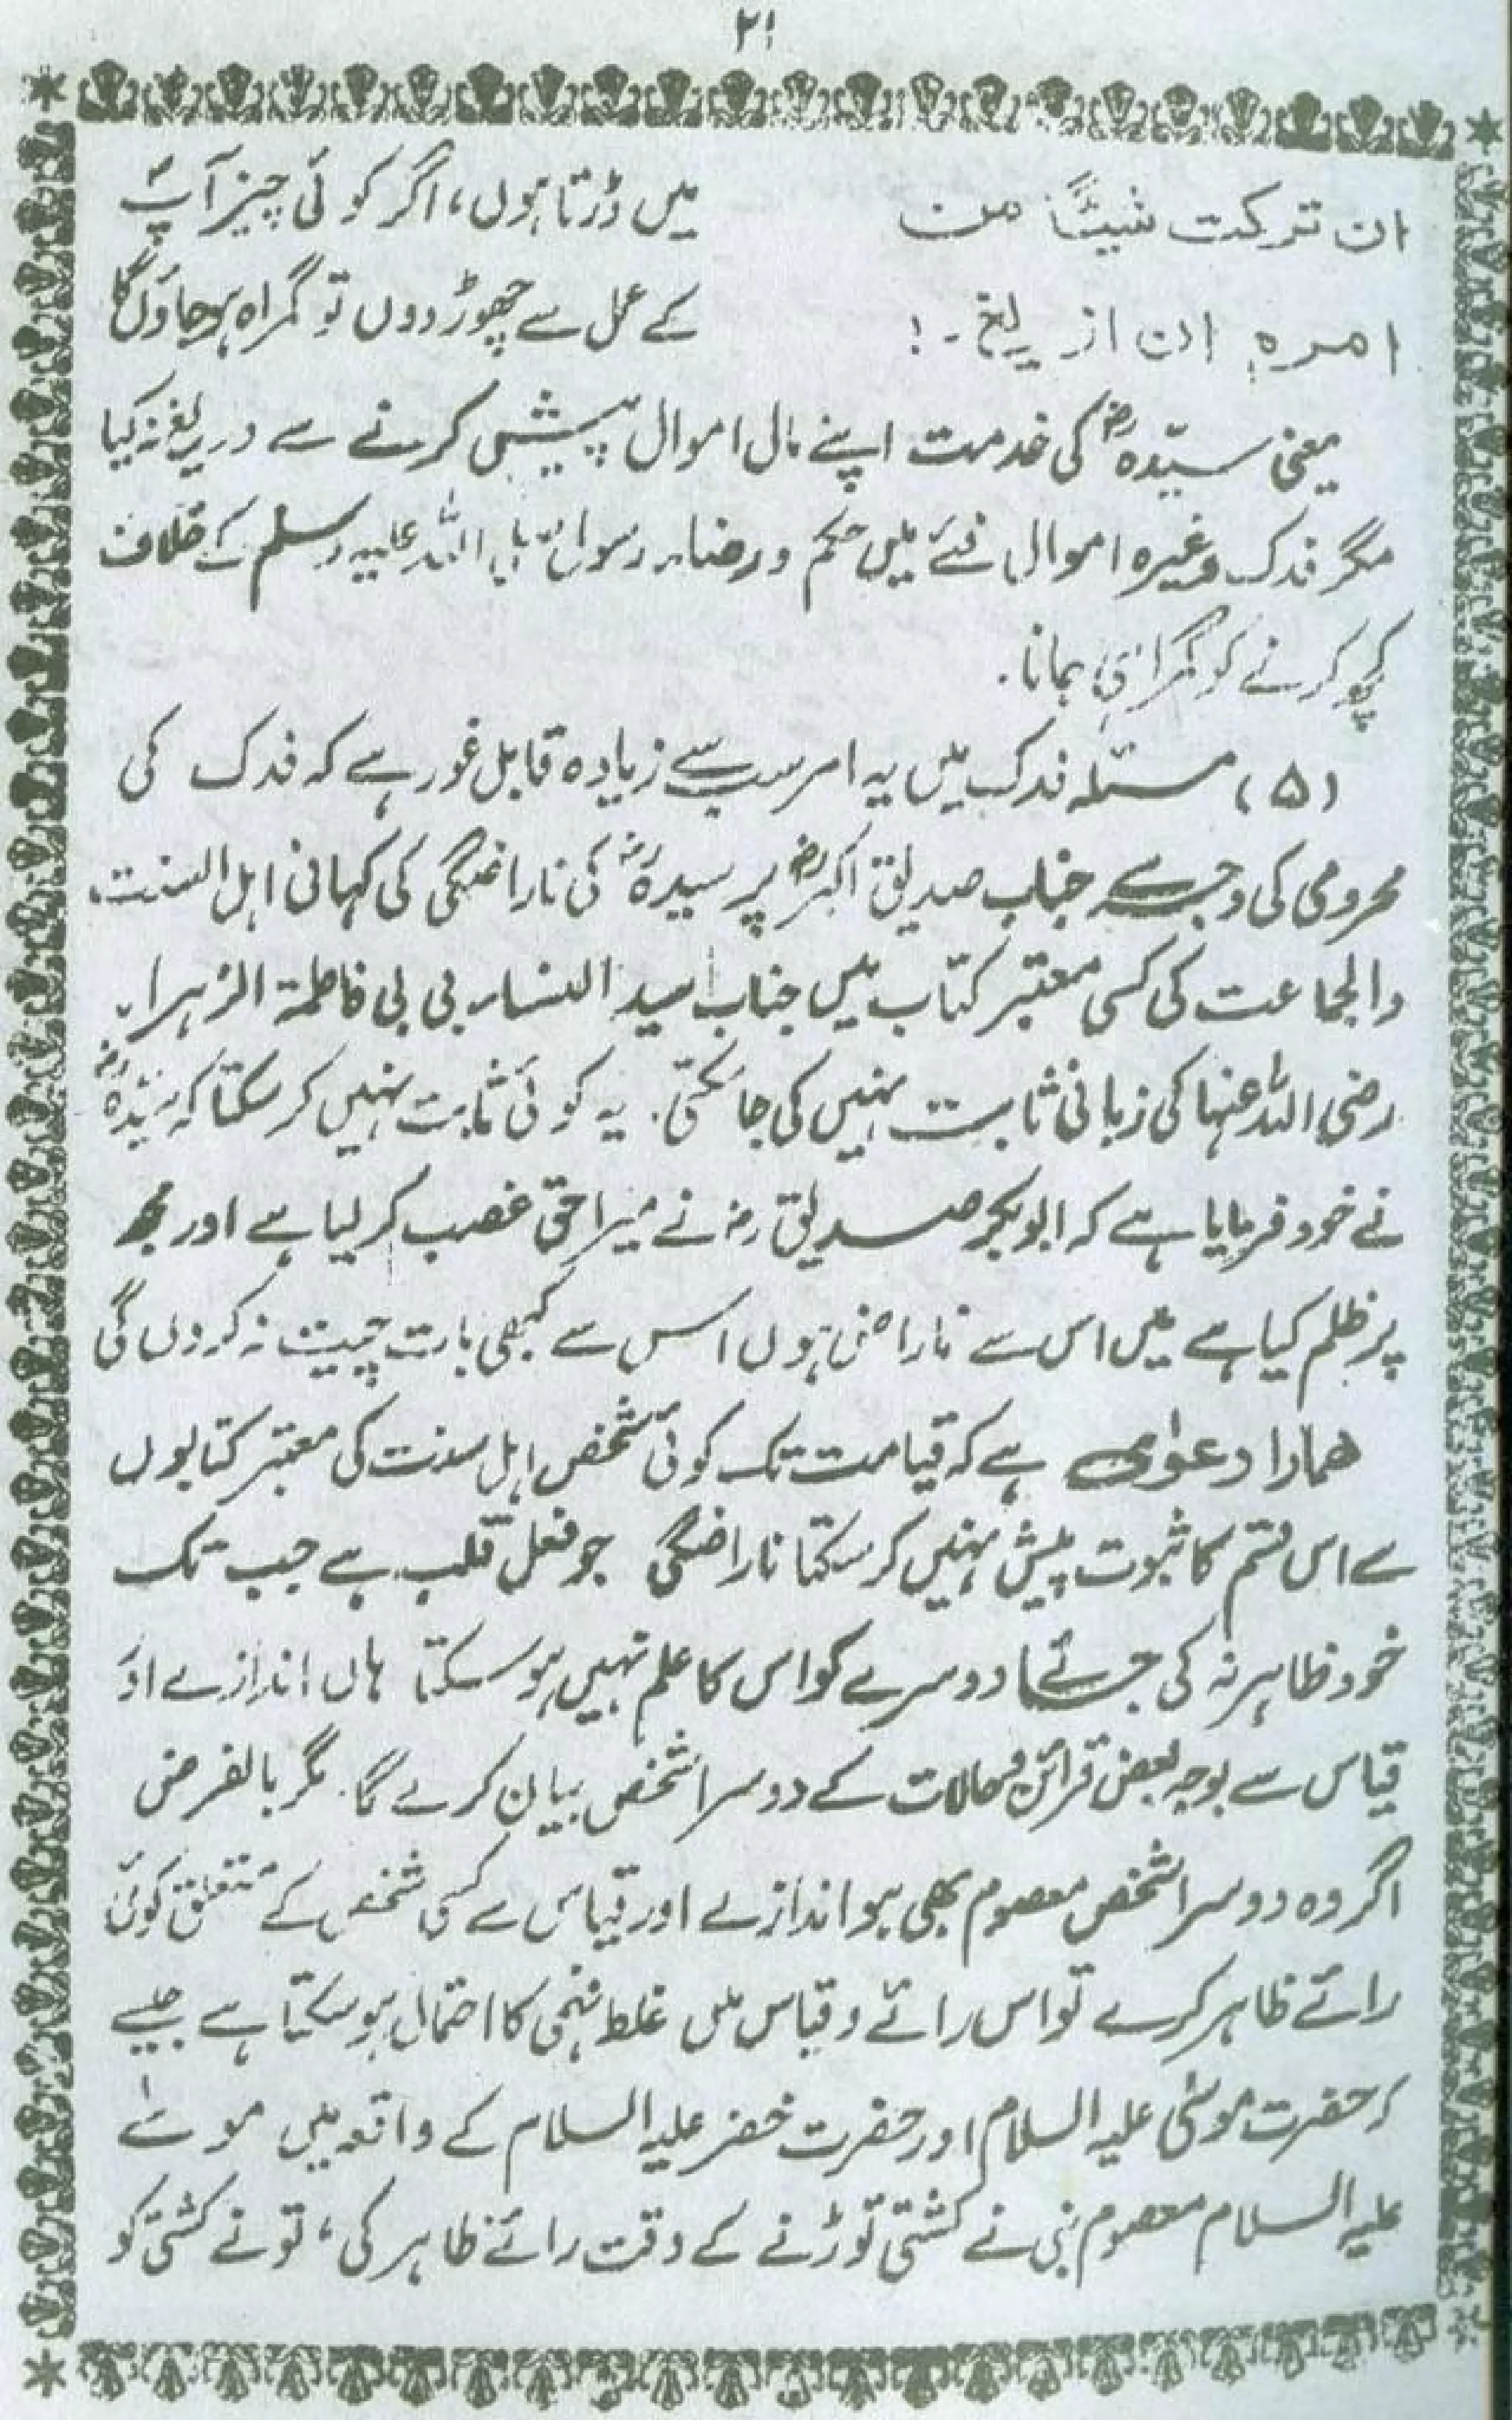 ۲۱
ان ترکت شیئًا من
امرہ ان ازیغ۔!
میں ڈرتا ہوں، اگر کوئی چیز آپؐ
کے عمل سے چھوڑ دوں تو گمراہ ہوجاؤں گا
یعنی سیّدہؓ کی خدمت اپنے مال اموال پیش کرنے سے دریغ نہ کیا
مگر فدک وغیرہ اموال فئے میں حکم و رضاء رسول اللہ علیہ وسلم کے خلاف
کچھ کرنے کو گمراہی جانا۔
(۵) مسئلہ فدک میں یہ امر سب سے زیادہ قابل غور ہے کہ فدک کی
محرومی کی وجہ سے جناب صدیق اکبرؓ پر سیدہؓ کی ناراضگی کی کہانی اہل السنت
والجماعت کی کسی معتبر کتاب میں جناب سید النساء بی بی فاطمۃ الزہراء
رضی اللہ عنہا کی زبانی ثابت نہیں کی جا سکتی۔ یہ کوئی ثابت نہیں کر سکتا کہ سیّدہؓ
نے خود فرمایا ہے کہ ابوبکر صدیق رضؓ نے میرا حق غصب کر لیا ہے اور مجھ
پر ظلم کیا ہے میں اس سے ناراض ہوں اس سے کبھی بات چیت نہ کروں گی
ھمارا دعوٰی ہے کہ قیامت تک کوئی شخص اہل سنت کی معتبر کتابوں
سے اس قسم کا ثبوت پیش نہیں کر سکتا ناراضگی جو فعل قلب ہے جب تک
خود ظاہر نہ کی جائے دوسرے کو اس کا علم نہیں ہو سکتا ہاں اندازے اور
قیاس سے بوجہ بعض قرائن و حالات کے دوسرا شخص بیان کرے گا۔ مگر بالفرض
اگر وہ دوسرا شخص معصوم بھی ہو اندازے اور قیاس سے کسی شخص کے متعلق کوئی
رائے ظاہر کرے تو اس رائے و قیاس میں غلط فہمی کا احتمال ہو سکتا ہے جیسے
کہ حضرت موسٰی علیہ السلام اور حضرت خضر علیہ السلام کے واقعہ میں موسٰے
علیہ السلام معصوم نبی نے کشتی توڑنے کے وقت رائے ظاہر کی، تو نے کشتی کو